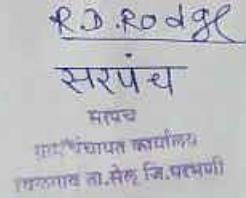 R.D.Rodge
सरपंच
सरपंच
ग्रामपंचायत कार्यालय
ता.सेलू जि.परभणी